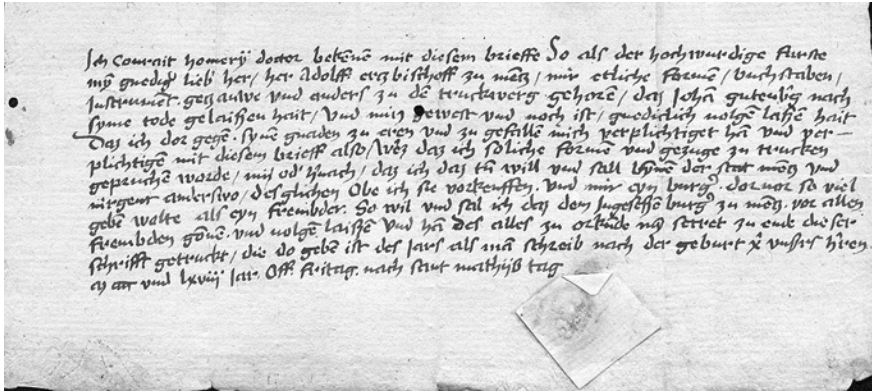 Ich Courait homery doctor bekenne mit diesem brieffe So als der hochwurdige furste
myn gnedigr lieber her, her Adolff erczbischoff zu mentz, mir etliche formen, buchstaben,
Instrument, geczauwe und anders zu dem truckwerg gehoren, daz Johan gutenberg nach
syme tode gelaißen hait, und myn gewest und noch ist, gnediclich volgen laßen hait
Daz ich dor gegen synen gnaden zu eren und zu gefallen mich verplichtiget han und ver-
plichtigen mit diesem brieff also, Wez daz ich soliche formen und gezuge zu trucken
gepruchen worde, nuͦ oder hernach, daz ich daz thun will und sall bynnen der stat mentz und
nirgent anderswo, desglichen Obe ich sie vorkeuffen, und mir eyn burger dor vor so viel
geben wolte als eyn frembder, So wil und sal ich daz dem Ingesessen burger zu mentz vor allen
frembden gonnen und volgen laißen und han des alles zu orkunde myn secret zu ende dieser
schrifft getruckt, die do geben ist des Jars als man schreib nach der geburt Xp̄i unsers hēren
und lxviii Jar Off fritag nach sant mathijß tag